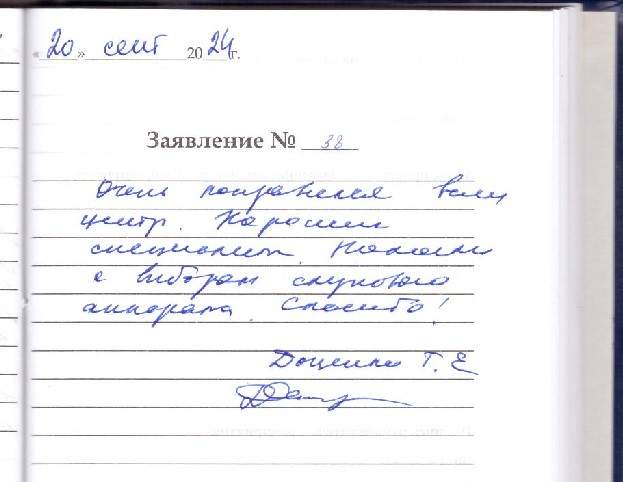 «20» сент 2024г.
Заявление № 38
Очень понравился ваш
центр. Хорошие
специалисты. Помогли
с выбором слухового
аппарата. Спасибо!
Доценко Т. Е